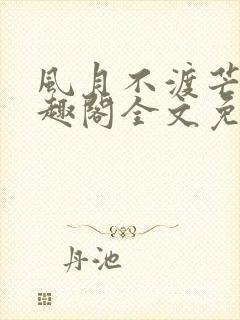 風月不渡芒
趣閣全文免
丹池